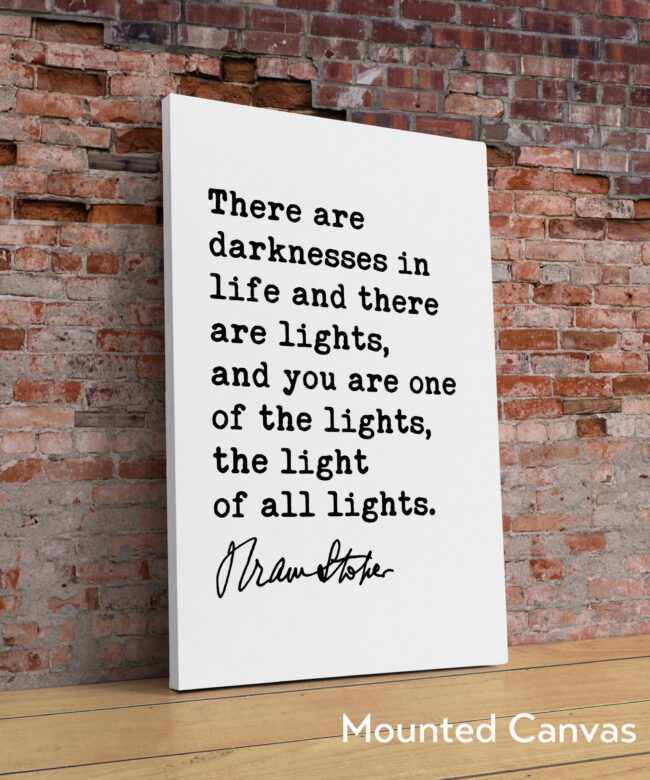 There are
darknesses in
life and there
are lights,
and you are one
of the lights,
the light
of all lights.
Bram Stoker
Mounted Canvas